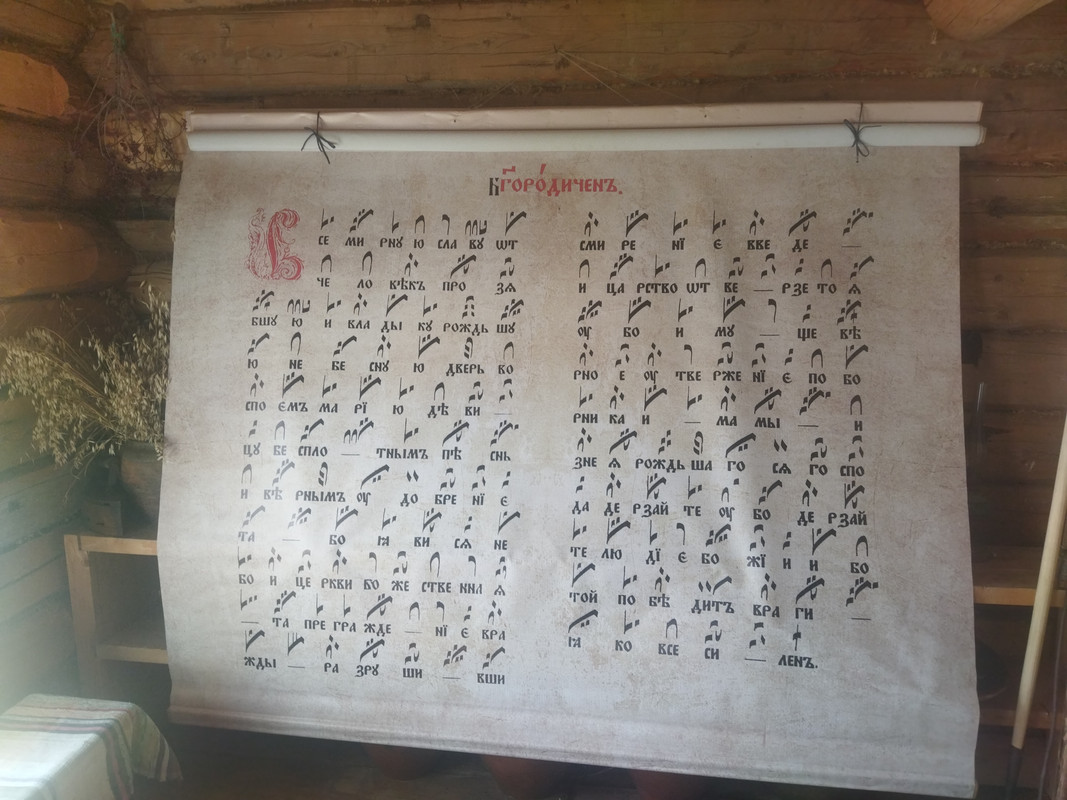 БГОРО́ДИЧЕНЪ.
В СЕ МИ РНУ Ю СЛА ВУ ѾТ
ЧЕ ЛО ВѢКЪ ПРО ЗѦ
БШУ Ю И ВЛА ДЫ КУ РОЖДЬ ШУ
Ю НЕ БЕ СНУ Ю ДВЕРЬ ВО
СПО ЄМЪ МА РЇ Ю ДѢ ВИ —
ЦУ БЕ СПЛО — ТНЫМЪ ПѢ СНЬ
И ВѢ РНЫМЪ ОУ ДО БРЕ НЇ Є
ТА — БО ІѦ ВИ СѦ НЕ
БО И ЦЕ РКВИ БО ЖЕ СТВЕ ННА Ѧ
— ТА ПРЕ ГРА ЖДЕ — НЇ Є ВРА
ЖДЫ — РА ЗРУ ШИ — ВШИ
СМИ РЕ НЇ Є ВВЕ ДЕ —
И ЦА РСТВО ѾТ ВЕ — РЗЕ ТО Ѧ
ОУ БО И МУ — ЩЕ ВѢ
РНО Е ОУ ТВЕ РЖЕ НЇ Є ПО БО
РНИ КА И — МА МЫ — И
ЗНЕ Ѧ РОЖДЬ ША ГО СѦ ГО СПО
ДА ДЕ РЗАЙ ТЕ ОУ БО ДЕ РЗАЙ
ТЕ ЛЮ ДЇ Є БО ЖЇ И И БО
ТОЙ ПО БѢ ДИТЪ ВРА ГИ —
ІѦ КО ВСЕ СИ — ЛЕНЪ.